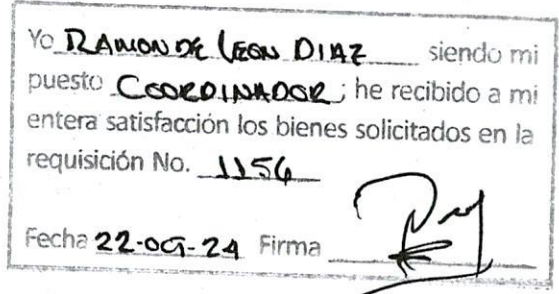 Yo RAMON DE LEON DIAZ siendo mi
puesto COORDINADOR; he recibido a mi
entera satisfacción los bienes solicitados en la
requisición No. 1156
Fecha 22-OCT-24 Firma